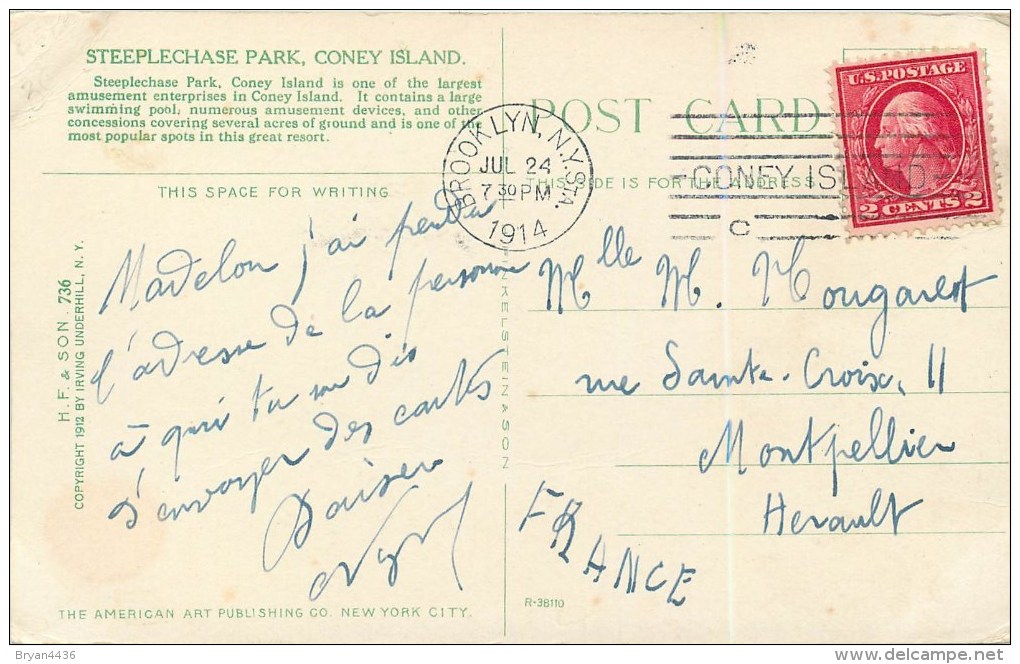 STEEPLECHASE PARK, CONEY ISLAND.
Steeplechase Park, Coney Island is one of the largest
amusement enterprises in Coney Island. It contains a large
swimming pool, numerous amusement devices, and other
concessions covering several acres of ground and is one of the
most popular spots in this great resort.
THIS SPACE FOR WRITING
Madelon j'ai perdu
l'adresse de la personne
à qui tu me dis
d'envoyer des cartes
Baisers
H. F. & SON. 736
COPYRIGHT 1912 BY IRVING UNDERHILL, N. Y.
FINKELSTEIN & SON
THE AMERICAN ART PUBLISHING CO. NEW YORK CITY.
POST CARD
THIS SIDE IS FOR THE ADDRESS
BROOKLYN, N.Y. STA.
JUL 24
7 30 PM
1914
CONEY ISLAND
C
U.S. POSTAGE
2 CENTS 2
Mlle M. Rougaret
rue Sainte-Croix, 11
Montpellier
Herault
FRANCE
R-38110
Bryan4436
delcampe.net